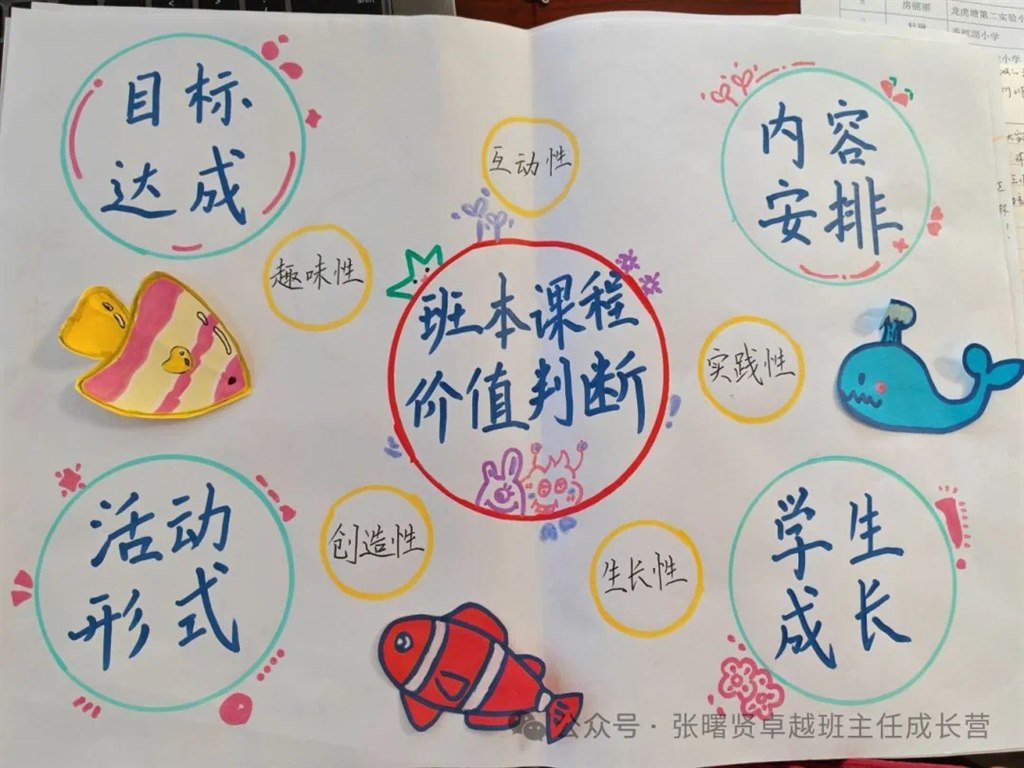 房丽丽
龙虎塘第二实验小
目标
达成
互动性
内容
安排
趣味性
班本课程
价值判断
实践性
活动
形式
创造性
生长性
学生
成长
公众号·张曙贤卓越班主任成长营